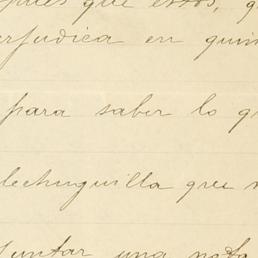 que estos, q
erjudica en quin
para saber lo q
lechuguilla que
juntar una nota